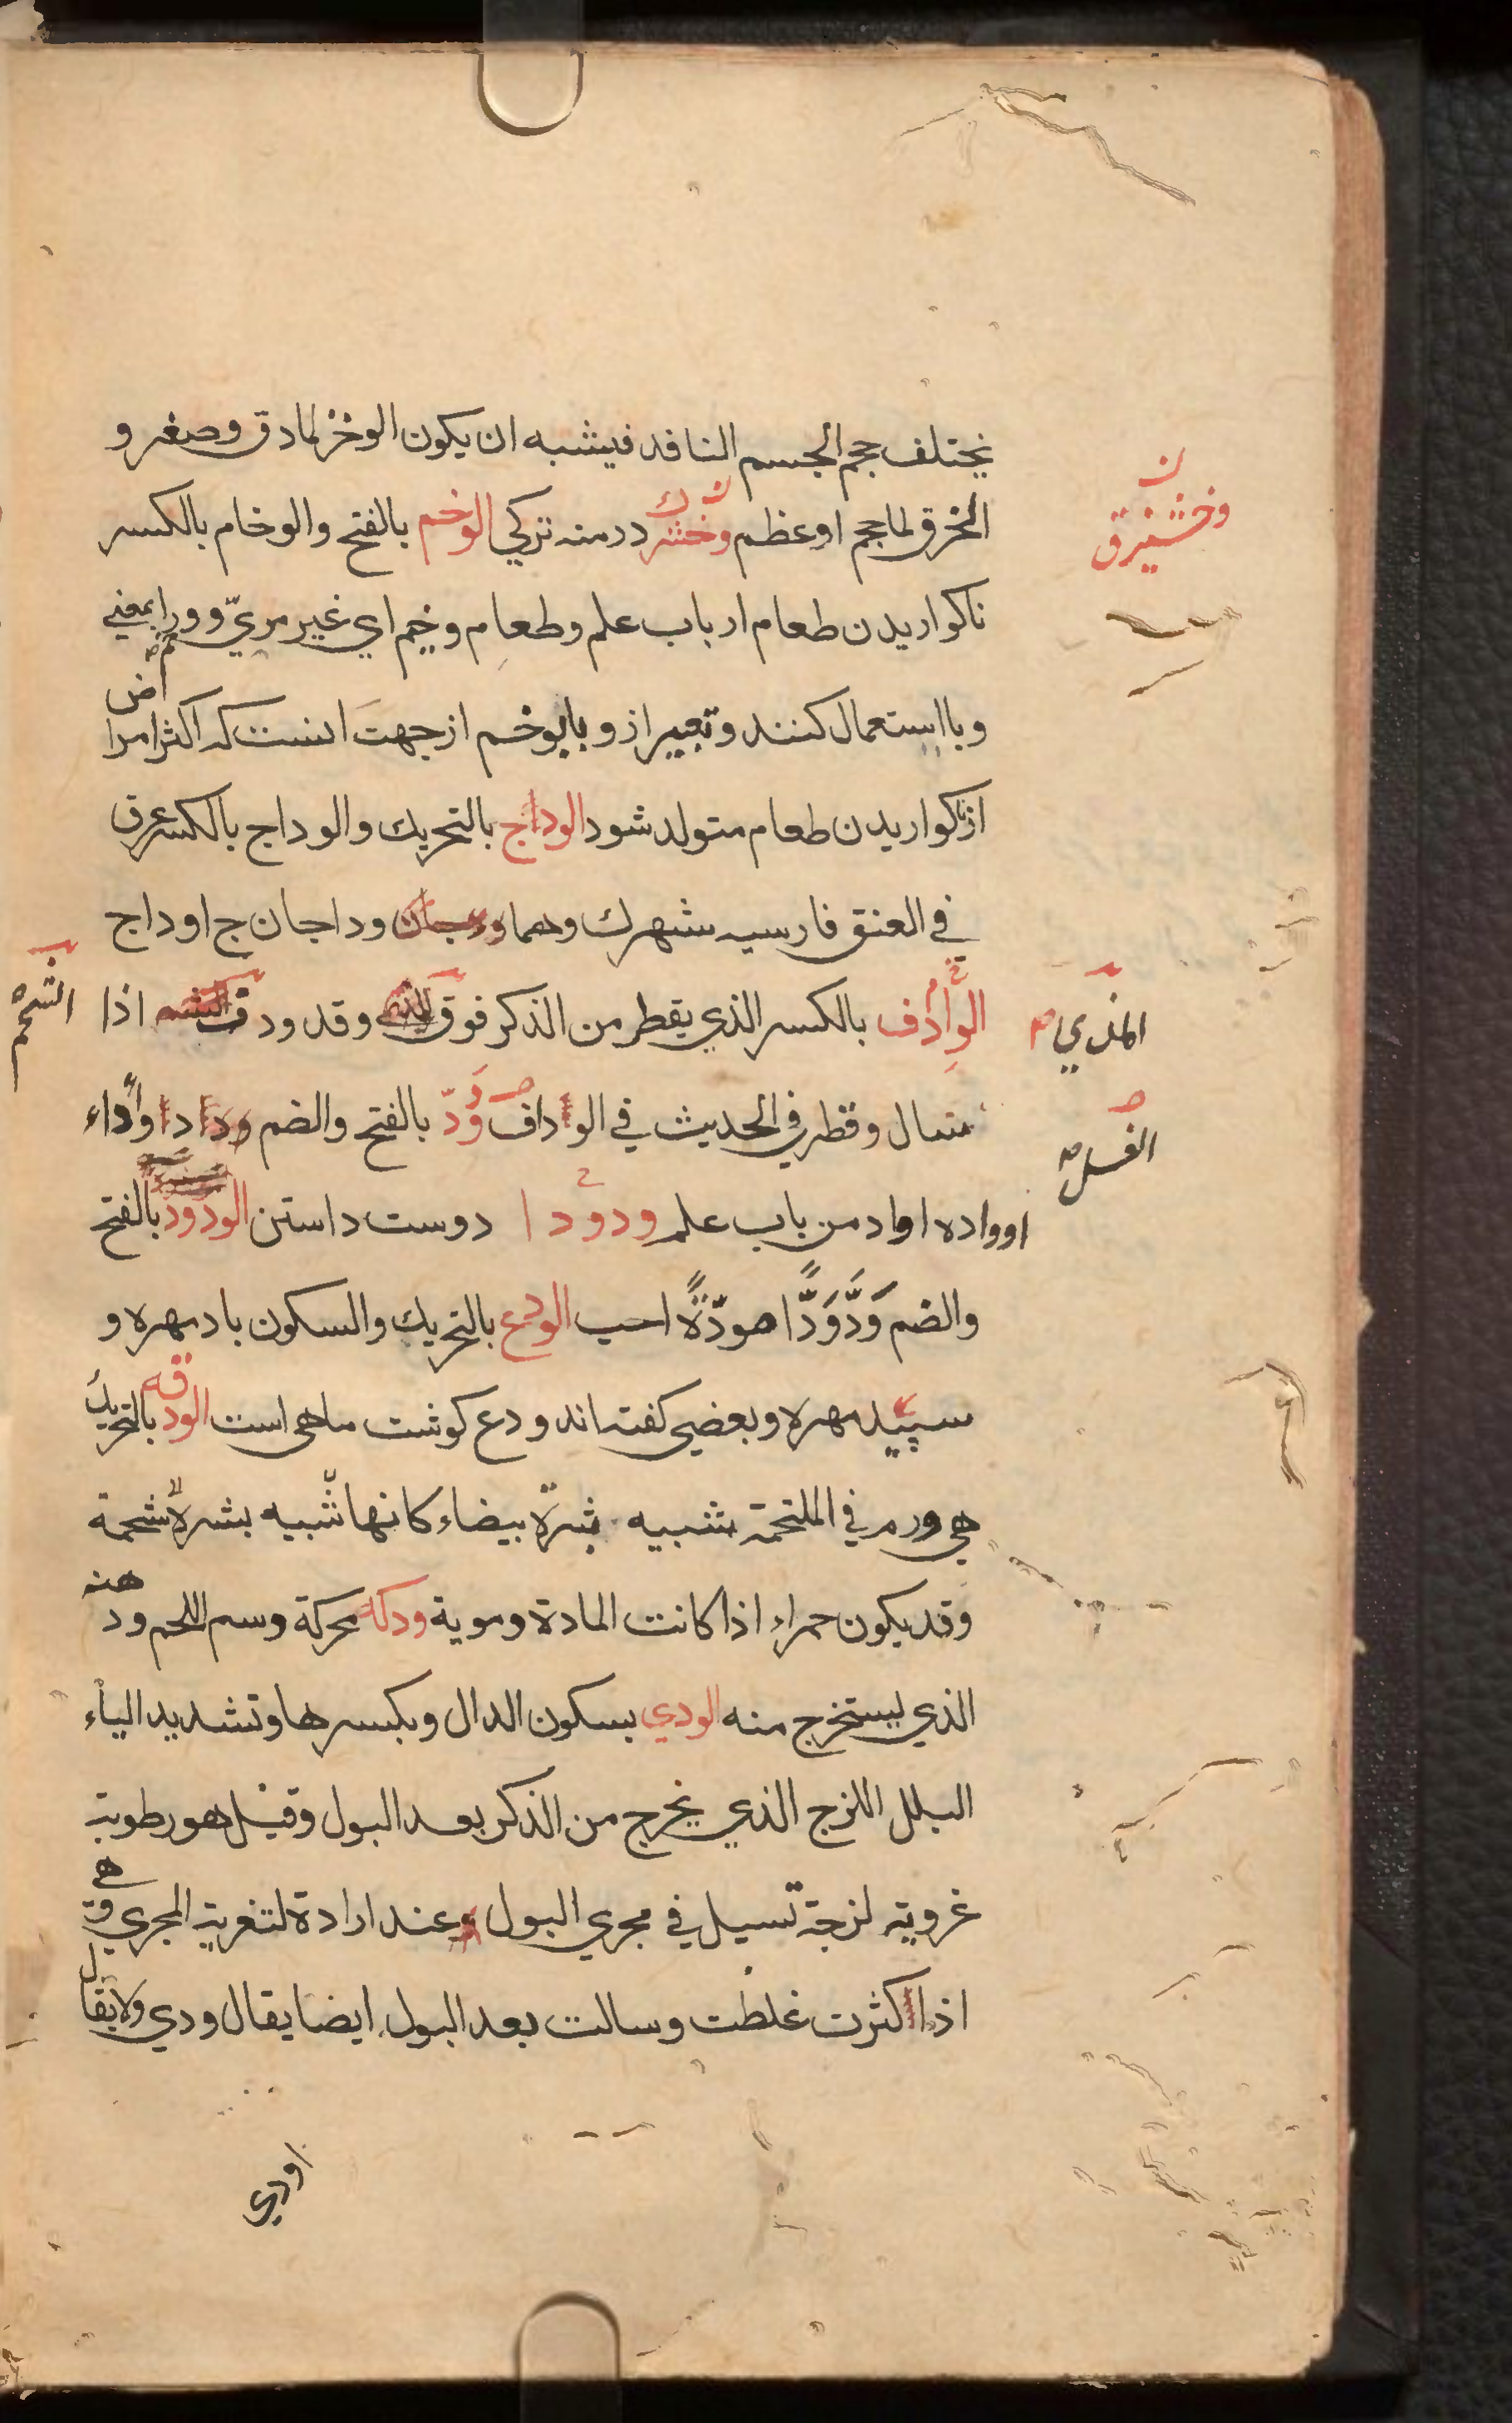 يختلف حجم الجسم النافد فيشبه ان يكون الوخز لما دق وصغر و
الخرق لما حجم او عظم وخشر درمنه تركي الوخم بالفتح والوخام بالكسر
وخشيزق
ناكواريدن طعام ار باب علم وطعام وخيم اي غير مريّ و ورا بمعني
وبا استعمال كنند وتعبير از وبا بوخم از جهت انست كه اكثر امراض
از ناكواريدن طعام متولد شود الوداج بالتحريك والوداج بالكسر عرق
في العنق فارسيه شهرك وهما وداجان ج اوداج
الوادف بالكسر الذي يقطر من الذكر فوق وقد ودف اذا
المذي
الشحم
سال وقطر في الحديث في الوداف ودّ بالفتح والضم وأداء
الغسل
اوواده اواد من باب علم ودودا دوست داستن الودود بالفتح
والضم وَدَّ وَدًّا مودّةً احب الودع بالتحريك والسكون باد مهره و
سپيد مهره وبعضي كفته اند ودع كوشت ماهي است الودقه بالتحريك
هي ورم في الملتحمة شبيه بثرة بيضاء كانها شبيه بشرة شحمة
وقد يكون حمراء اذا كانت المادة وموية ودكة محركة وسم اللحم ودهنه
الذي ليستخرج منه الودي بسكون الدال وبكسرها وتشديد الياء
البلل اللزج الذي يخرج من الذكر بعد البول وقيل هو رطوبة
غروية لزجة تسيل في مجري البول عند ارادة لتغرية المجري وهي
اذا كثرت غلظت وسالت بعد البول ايضا يقال ودي ولا يقال
اودي